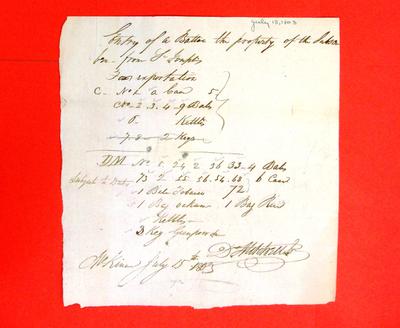 July 15, 1803
Entry of a Battoe the property of the
ben - from St Josephs
For exportation
C - No 1 a Case 5
No 2 - 3 - 4 - 9 Bales
8 - Kettles
- 7 - 8 - 2 Kegs
DM No 5 24 2 36 33 - 4 Bales
Subject to Duty 73 2 55 56. 54. 68 6 Cases
1 Bale Tobacco 72
1 Bag 1 Bag
Kettles
Keg Gunpowder
McKinac July 15th 1803 D Mitchell Jr